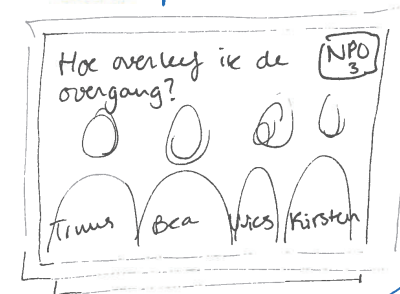 Hoe overleef ik de
overgang?
NPO
3
Tinus
Bea
Kirsten